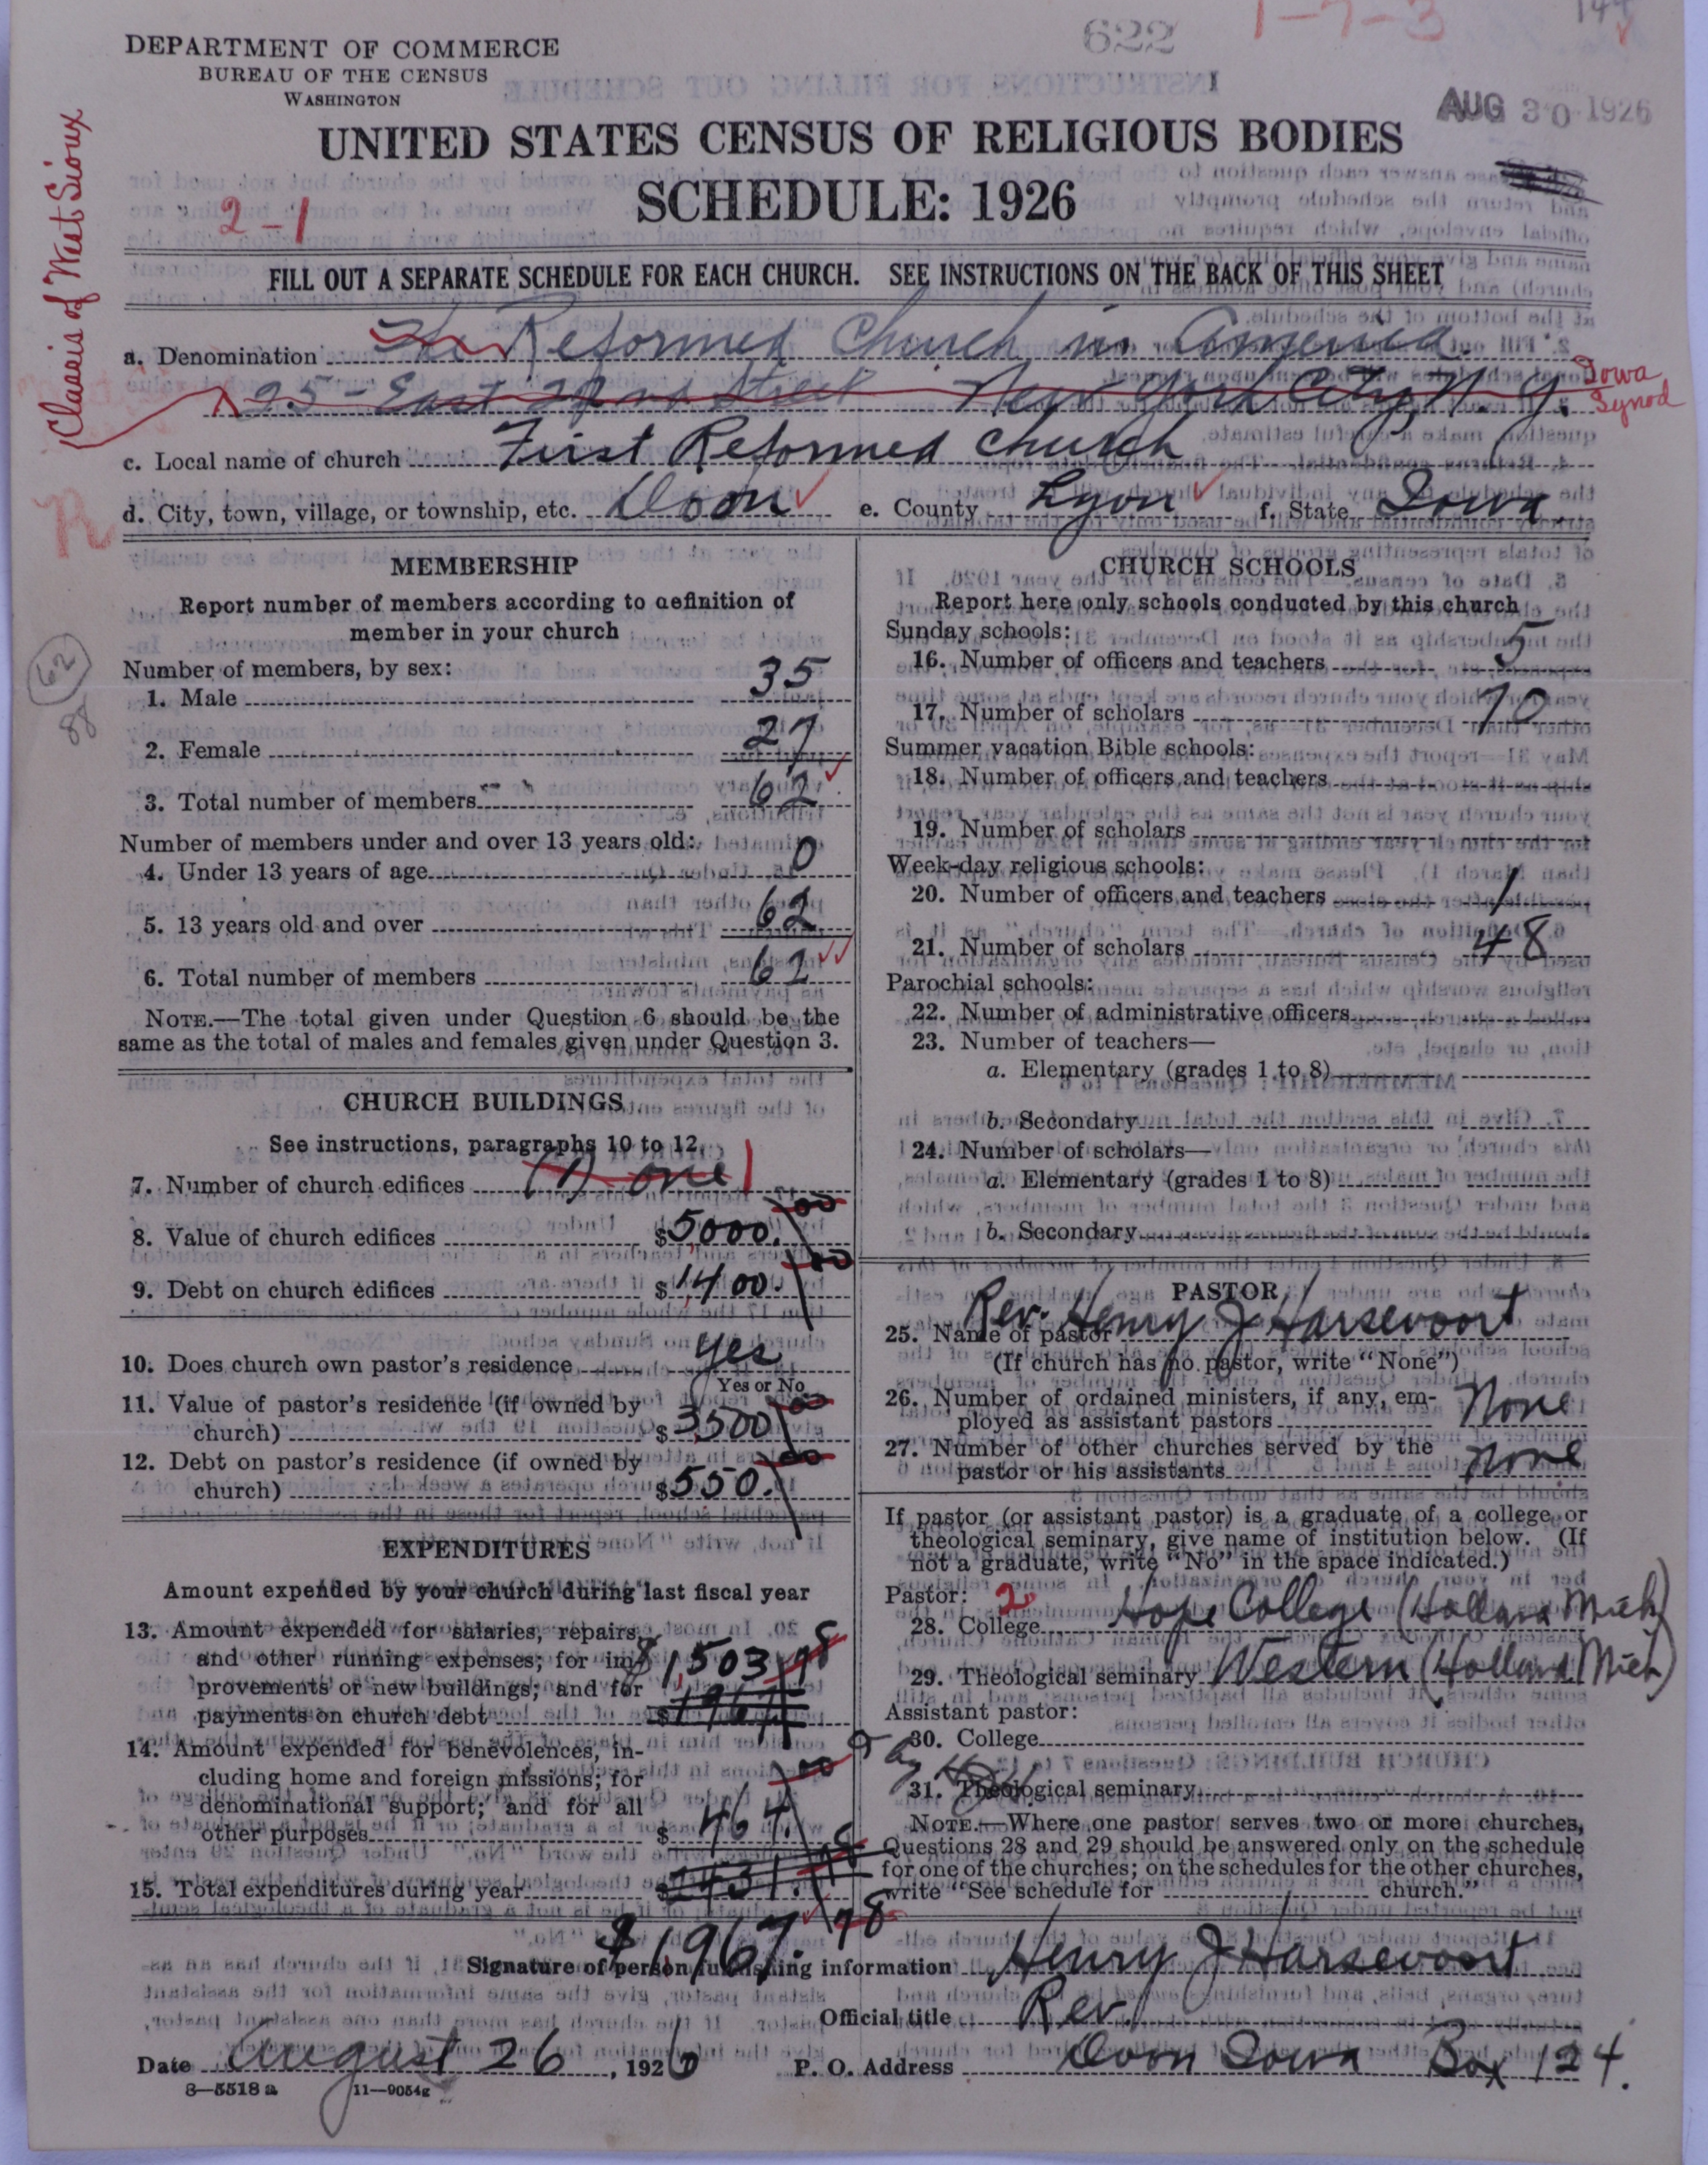 622
1-7-3
144
DEPARTMENT OF COMMERCE
BUREAU OF THE CENSUS
WASHINGTON
AUG 30 1926
UNITED STATES CENSUS OF RELIGIOUS BODIES
SCHEDULE: 1926
2-1
Classis of West Sioux
FILL OUT A SEPARATE SCHEDULE FOR EACH CHURCH. SEE INSTRUCTIONS ON THE BACK OF THIS SHEET
a. Denomination The Reformed Church in America.
25-East 22nd Street New York City, N. Y. Iowa Synod
c. Local name of church First Reformed Church
d. City, town, village, or township, etc. Doon e. County Lyon f. State Iowa.
R
MEMBERSHIP
Report number of members according to definition of
member in your church
62
88
Number of members, by sex:
1. Male 35
2. Female 27
3. Total number of members 62
Number of members under and over 13 years old:
4. Under 13 years of age 0
5. 13 years old and over 62
6. Total number of members 62
NOTE.—The total given under Question 6 should be the
same as the total of males and females given under Question 3.
CHURCH BUILDINGS
See instructions, paragraphs 10 to 12.
7. Number of church edifices (1) one 1
8. Value of church edifices $5000.00
9. Debt on church edifices $1,400.00
10. Does church own pastor's residence yes
Yes or No
11. Value of pastor's residence (if owned by
church) $3500.00
12. Debt on pastor's residence (if owned by
church) $550.00
EXPENDITURES
Amount expended by your church during last fiscal year
13. Amount expended for salaries, repairs
and other running expenses; for im- $1,503.78
provements or new buildings; and for
payments on church debt $1967
14. Amount expended for benevolences, in-
cluding home and foreign missions; for
denominational support; and for all
other purposes $464.00
15. Total expenditures during year $2431.
$1,967.78
CHURCH SCHOOLS
Report here only schools conducted by this church
Sunday schools:
16. Number of officers and teachers 5
17. Number of scholars 70
Summer vacation Bible schools:
18. Number of officers and teachers
19. Number of scholars
Week-day religious schools:
20. Number of officers and teachers 1
21. Number of scholars 48
Parochial schools:
22. Number of administrative officers
23. Number of teachers—
a. Elementary (grades 1 to 8)
b. Secondary
24. Number of scholars—
a. Elementary (grades 1 to 8)
b. Secondary
PASTOR
25. Name of pastor Rev. Henry J Harsevoort
(If church has no pastor, write "None")
26. Number of ordained ministers, if any, em-
ployed as assistant pastors None
27. Number of other churches served by the
pastor or his assistants None
If pastor (or assistant pastor) is a graduate of a college or
theological seminary, give name of institution below. (If
not a graduate, write "No" in the space indicated.)
Pastor: 2
28. College Hope College (Holland Mich)
29. Theological seminary Western (Holland Mich)
Assistant pastor:
30. College
31. Theological seminary
NOTE.—Where one pastor serves two or more churches,
Questions 28 and 29 should be answered only on the schedule
for one of the churches; on the schedules for the other churches,
write "See schedule for church."
Signature of person furnishing information Henry J Harsevoort
Official title Rev.
Date August 26, 1926 P. O. Address Doon Iowa Box 124.
8—5518 a 11—9054g